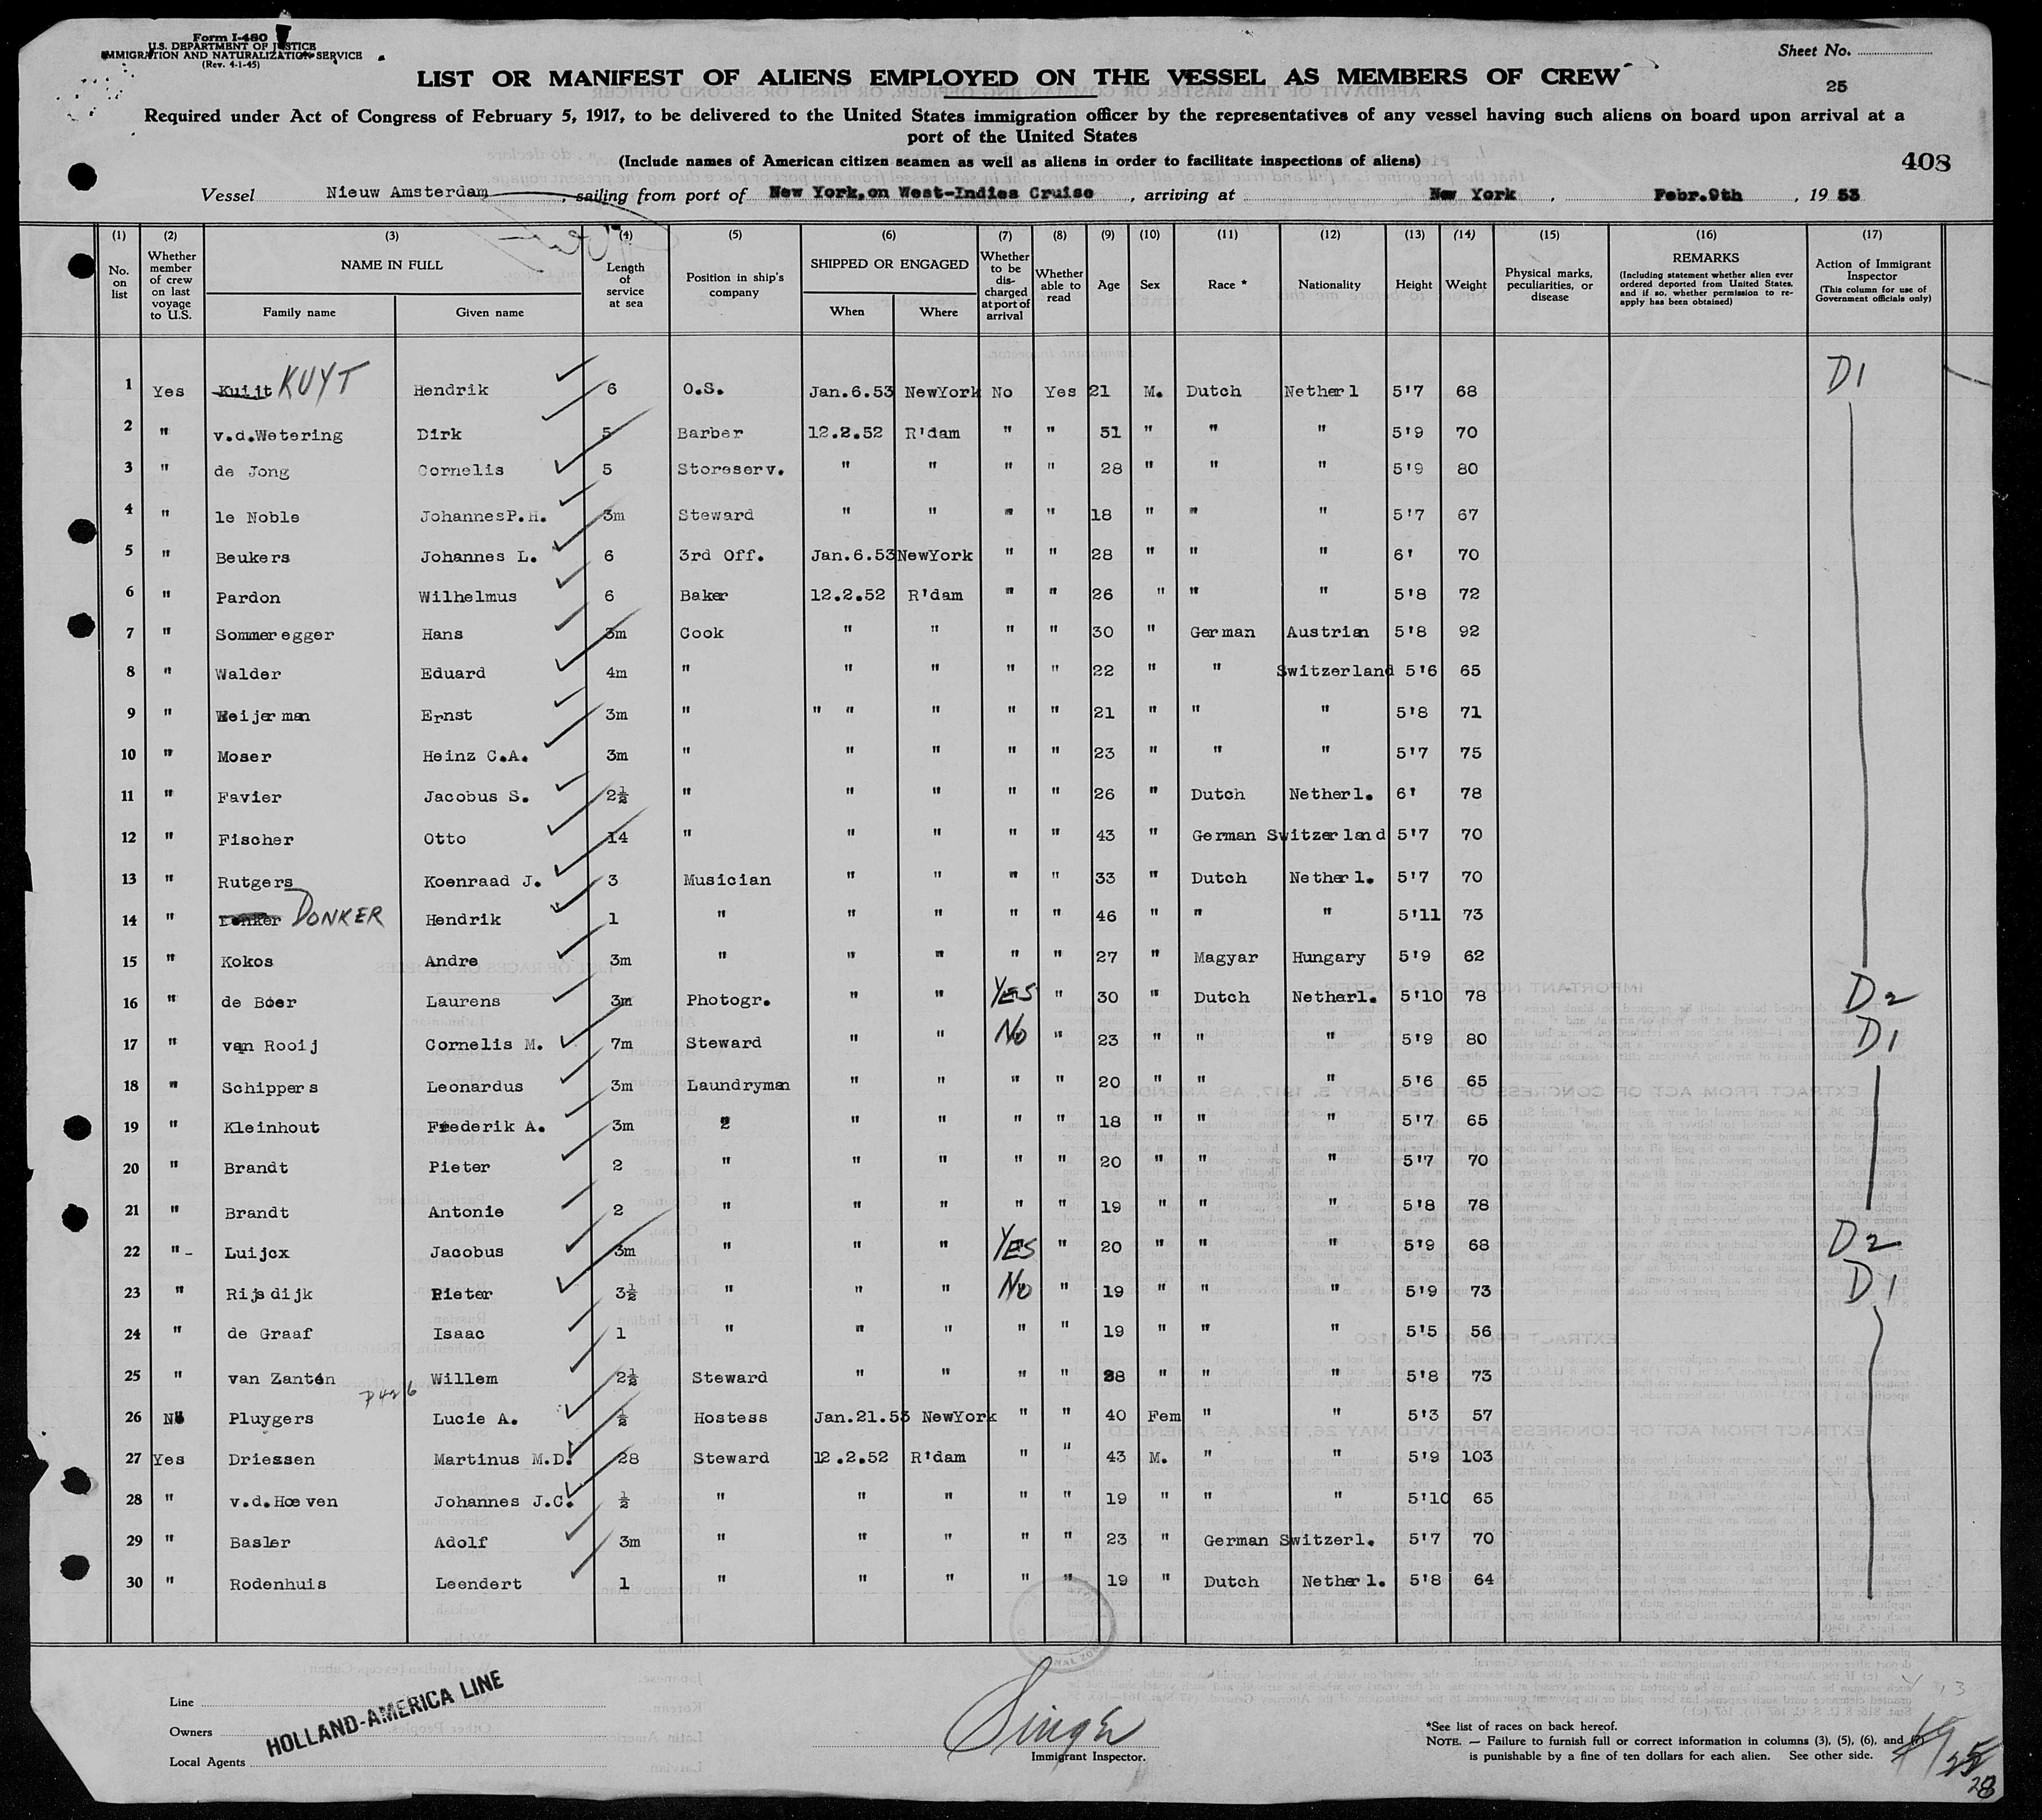 Form I-480
U.S. DEPARTMENT OF JUSTICE
IMMIGRATION AND NATURALIZATION SERVICE
(Rev. 4-1-45)
Sheet No.
25
LIST OR MANIFEST OF ALIENS EMPLOYED ON THE VESSEL AS MEMBERS OF CREW
Required under Act of Congress of February 5, 1917, to be delivered to the United States immigration officer by the representatives of any vessel having such aliens on board upon arrival at a
port of the United States
(Include names of American citizen seamen as well as aliens in order to facilitate inspections of aliens)
408
Vessel Nieuw Amsterdam, sailing from port of New York, on West-Indies Cruise, arriving at New York, Febr. 9th, 1953
(1) (2) (3) (4) (5) (6) (7) (8) (9) (10) (11) (12) (13) (14) (15) (16) (17)
No. on list
Whether member of crew on last voyage to U.S.
NAME IN FULL
Family name Given name
Length of service at sea
Position in ship's company
SHIPPED OR ENGAGED
When Where
Whether to be discharged at port of arrival
Whether able to read
Age Sex Race * Nationality Height Weight
Physical marks, peculiarities, or disease
REMARKS
(Including statement whether alien ever ordered deported from United States, and if so, whether permission to re-apply has been obtained)
Action of Immigrant Inspector
(This column for use of Government officials only)
1 Yes Kuijt KUYT Hendrik 6 O.S. Jan.6.53 NewYork No Yes 21 M. Dutch Netherl 5'7 68 D1
2 " v.d.Wetering Dirk 5 Barber 12.2.52 R'dam " " 51 " " " 5'9 70
3 " de Jong Cornelis 5 Storeserv. " " " " 28 " " " 5'9 80
4 " le Noble Johannes P.H. 3m Steward " " " " 18 " " " 5'7 67
5 " Beukers Johannes L. 6 3rd Off. Jan.6.53 NewYork " " 28 " " " 6' 70
6 " Pardon Wilhelmus 6 Baker 12.2.52 R'dam " " 26 " " " 5'8 72
7 " Sommeregger Hans 3m Cook " " " " 30 " German Austrian 5'8 92
8 " Walder Eduard 4m " " " " " 22 " " Switzerland 5'6 65
9 " Weijerman Ernst 3m " " " " " " 21 " " " 5'8 71
10 " Moser Heinz C.A. 3m " " " " " 23 " " " 5'7 75
11 " Favier Jacobus S. 2½ " " " " " 26 " Dutch Netherl. 6' 78
12 " Fischer Otto 14 " " " " " 43 " German Switzerland 5'7 70
13 " Rutgers Koenraad J. 3 Musician " " " " 33 " Dutch Netherl. 5'7 70
14 " DONKER Hendrik 1 " " " " " 46 " " " 5'11 73
15 " Kokos Andre 3m " " " " " 27 " Magyar Hungary 5'9 62
16 " de Boer Laurens 3m Photogr. " " YES " 30 " Dutch Netherl. 5'10 78 D2
17 " van Rooij Cornelis M. 7m Steward " " No " 23 " " " 5'9 80 D1
18 " Schippers Leonardus 3m Laundryman " " " " 20 " " " 5'6 65
19 " Kleinhout Frederik A. 3m " " " " " 18 " " " 5'7 65
20 " Brandt Pieter 2 " " " " " 20 " " " 5'7 70
21 " Brandt Antonie 2 " " " " " 19 " " " 5'8 78
22 "- Luijcx Jacobus 3m " " " YES " 20 " " " 5'9 68 D2
23 " Rijsdijk Pieter 3½ " " " No " 19 " " " 5'9 73 D1
24 " de Graaf Isaac 1 " " " " " 19 " " " 5'5 56
25 " van Zanten Willem 2½ Steward " " " " 38 " " " 5'8 73
26 No Pluygers Lucie A. ½ Hostess Jan.21.53 NewYork " " 40 Fem " " 5'3 57
27 Yes Driessen Martinus M.D. 28 Steward 12.2.52 R'dam " " 43 M. " " 5'9 103
28 " v.d.Hoeven Johannes J.C. ½ " " " " " 19 " " " 5'10 65
29 " Basler Adolf 3m " " " " " 23 " German Switzerl. 5'7 70
30 " Rodenhuis Leendert 1 " " " " " 19 " Dutch Netherl. 5'8 64
Line
Owners
Local Agents
HOLLAND-AMERICA LINE
Singer
Immigrant Inspector.
*See list of races on back hereof.
NOTE. — Failure to furnish full or correct information in columns (3), (5), (6), and
is punishable by a fine of ten dollars for each alien. See other side.
25
28